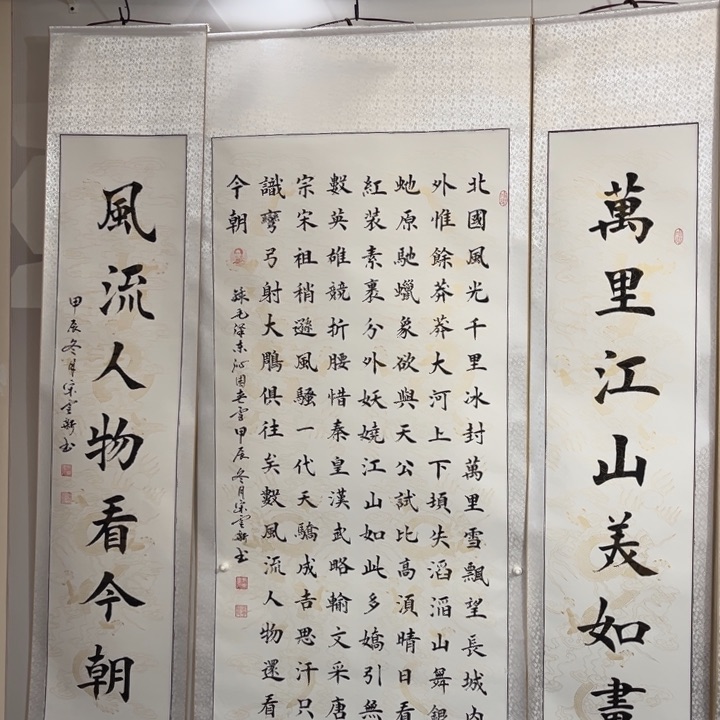 萬里江山美如畫
北國風光千里冰封萬里雪飄望長城内
外惟餘莽莽大河上下頓失滔滔山舞銀
虵原馳蠟象欲與天公試比高湏晴日看
紅装素裹分外妖嬈江山如此多嬌引無
數英雄競折腰惜秦皇漢武略輸文采唐
宗宋祖稍遜風騷一代天驕成吉思汗只
識彎弓射大鵰俱往矣數風流人物還看
今朝
録毛澤东沁园春雪甲辰冬月宋雲新书
風流人物看今朝
甲辰冬月宋雲新书